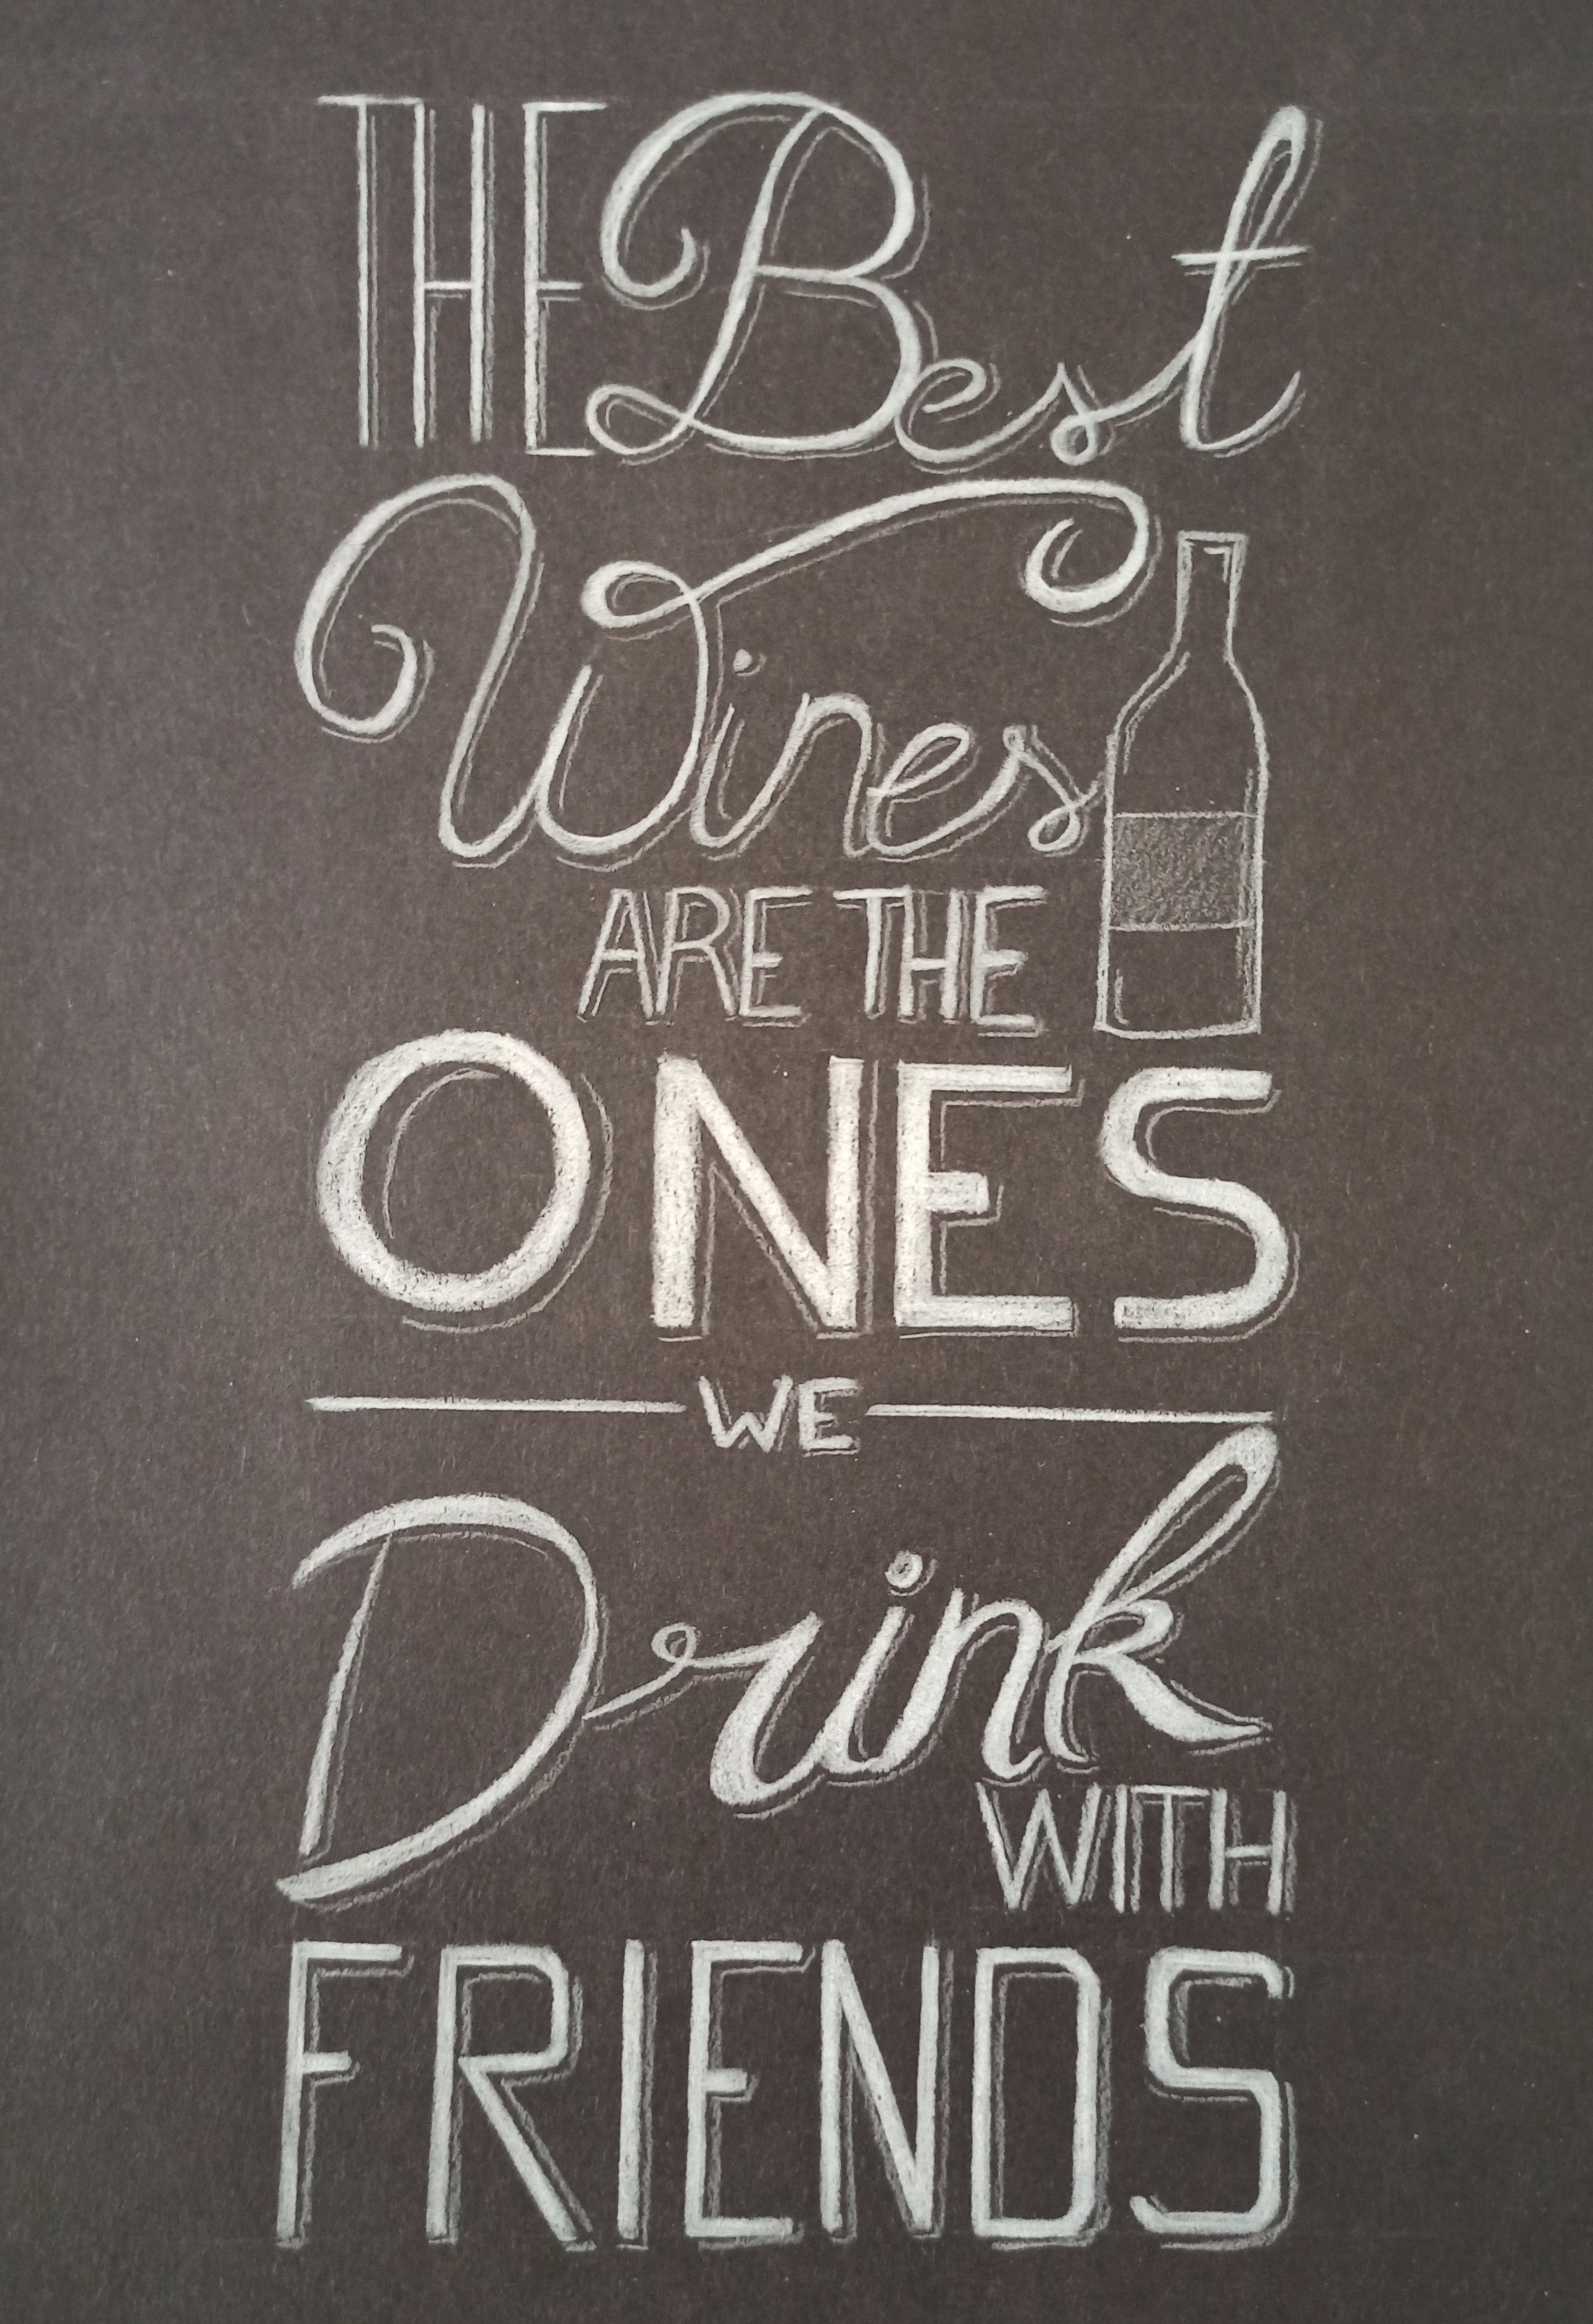 THE Best
Wines
ARE THE
ONES
WE
Drink
WITH
FRIENDS